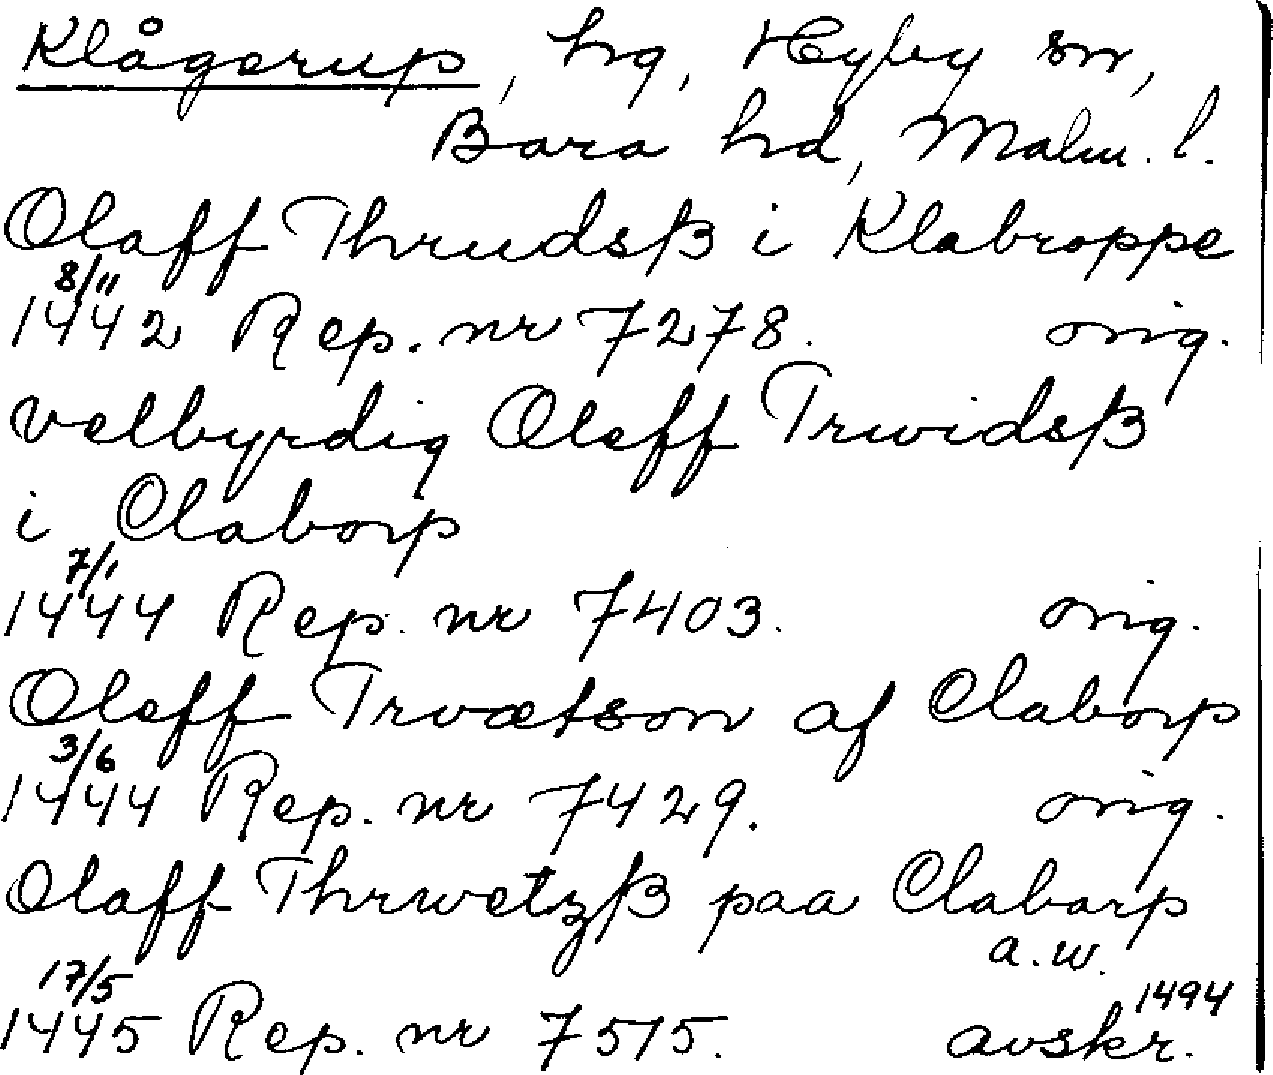 Klågerup, hg, Hyby sn,
Bara hd, Malm. l.
Olaff Thrudsß i Klabroppe
8/11
1442 Rep. nr 7278. orig.
velbyrdig Oleff Trwidsß
i Claborp
7/1
1444 Rep. nr 7403. orig.
Oleff Trvætson af Claborp
3/6
1444 Rep. nr 7429. orig.
Olaff Thrwetzß paa Clabarp
a.w.
17/5 1494
1445 Rep. nr 7515. avskr.